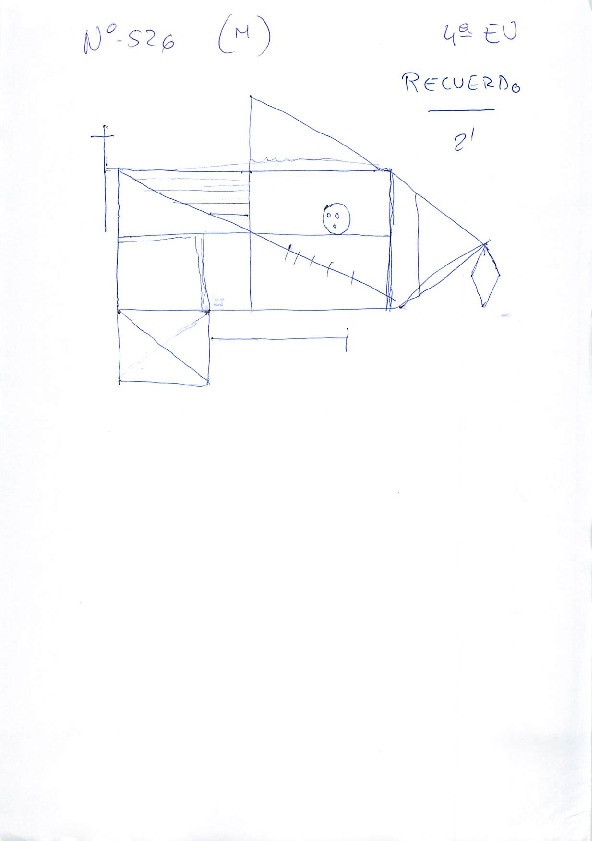 Nº 526 (M) 4ª EV
RECUERDO
2'